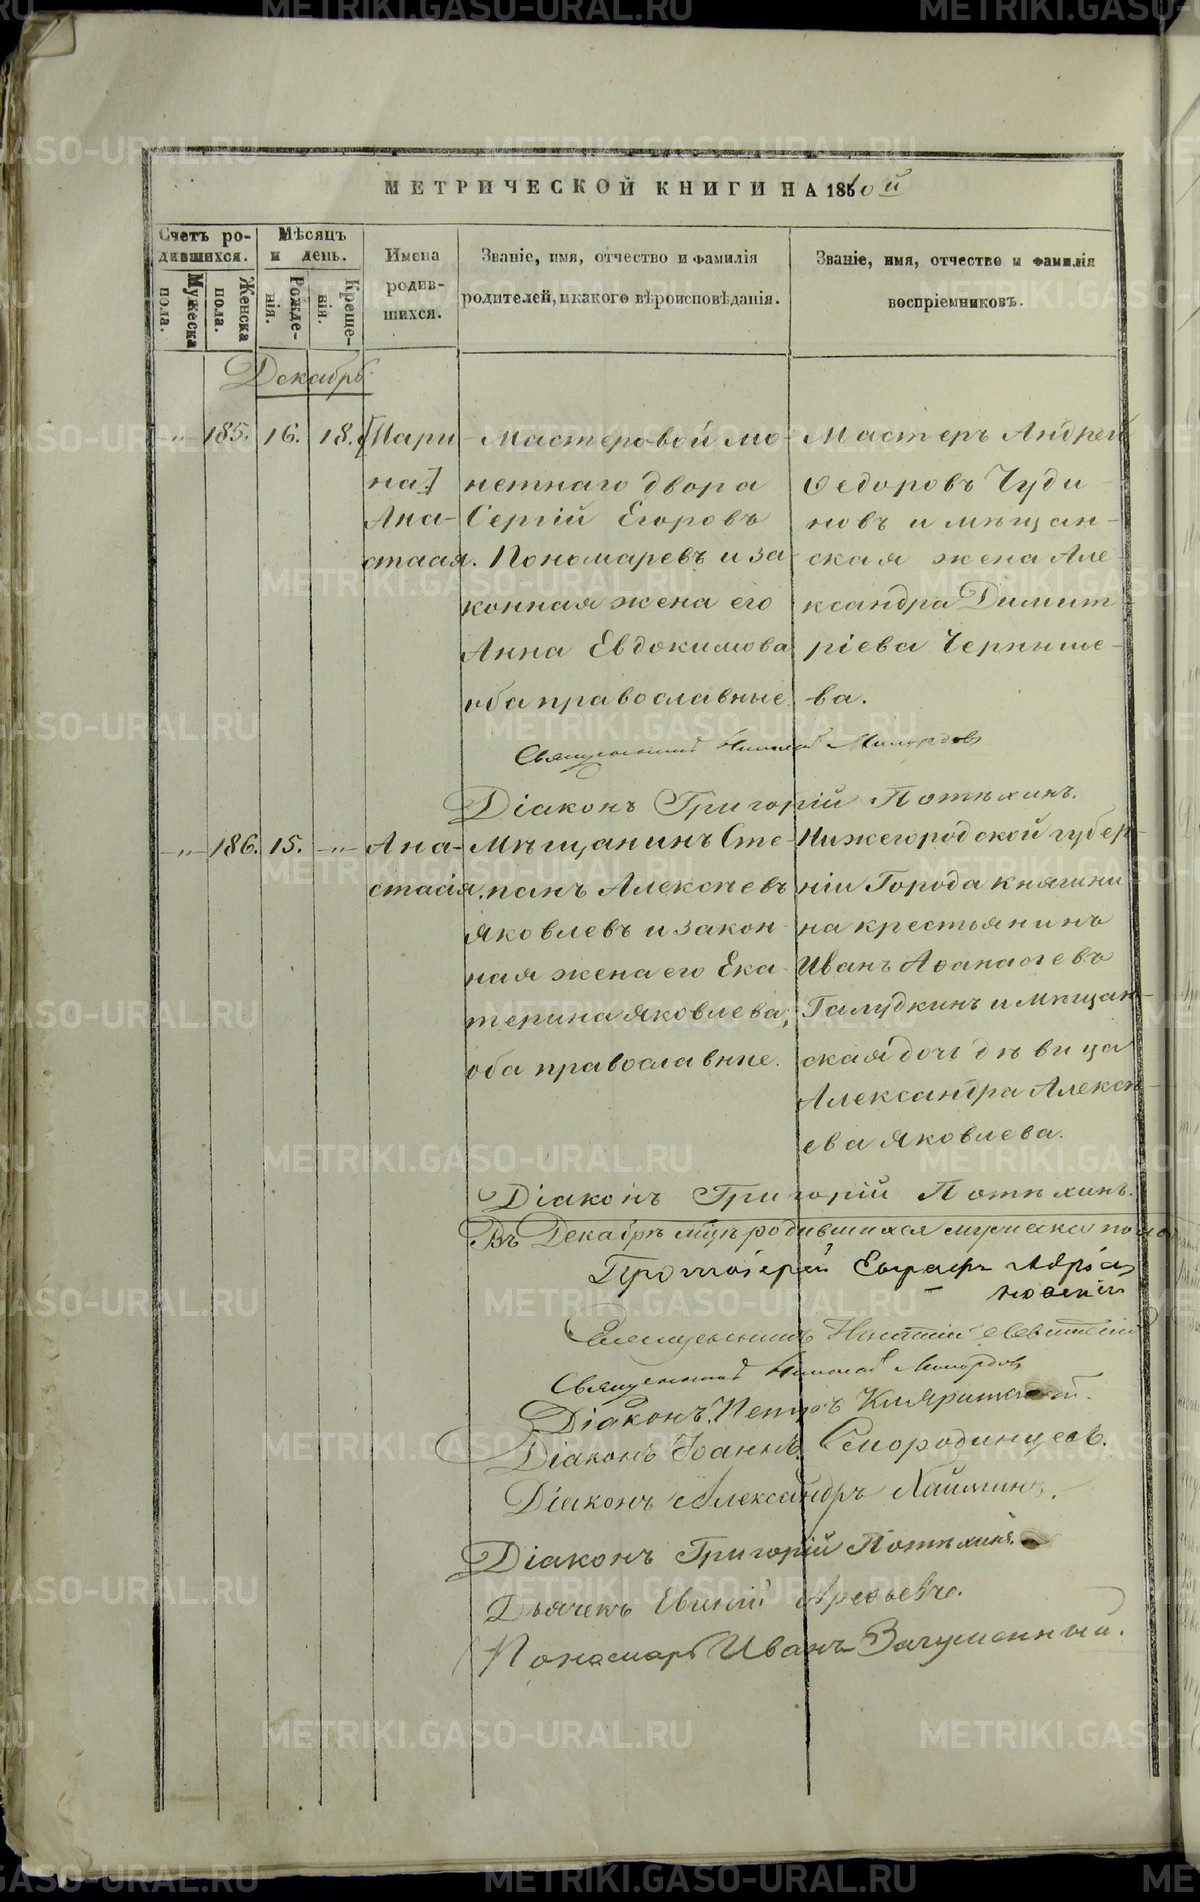 МЕТРИЧЕСКОЙ КНИГИ НА 1860й
Счетъ родившихся.
Мѣсяцъ и день.
Имена родившихся.
Званіе, имя, отчество и фамилія родителей, и какого вѣроисповѣданія.
Званіе, имя, отчество и фамилія воспріемниковъ.
Мужеска пола.
Женска пола.
Рожденія.
Крещенія.
Декабрь
-„- 185. 16. 18. [Мари
на.]
Ана-
стасія.
Мастеровой мо-
нетнаго двора
Сергій Егоровъ
Пономаревъ и за-
конная жена его
Анна Евдокимова
оба православные.
Мастеръ Андрей
Ѳедоровъ Чуди-
новъ и мѣщан-
ская жена Але-
ксандра Димит-
ріева Черныше-
ва.
Священникъ Николай
Діаконъ Григорій Потѣхинъ.
-„- 186. 15. -„- Ана-
стасія.
Мѣщанинъ Сте-
панъ Алексѣевъ
Яковлевъ и закон-
ная жена его Ека-
терина Яковлева,
оба православные.
Нижегородской губер-
ніи Города Княгини
на крестьянинъ
Иванъ Аѳанасьевъ
Галудкинъ и мѣщан-
ская дочь дѣвица
Александра Алексѣ-
ева Яковлева.
Діаконъ Григорій Потѣхинъ.
Въ Декабрѣ мцѣ родившихся мужеска пола
Протоіерей
Священникъ
Священникъ Николай
Діаконъ Петръ
Діаконъ Іоаннъ Смородинцевъ.
Діаконъ Александръ
Діаконъ Григорій Потѣхинъ.
Дьячекъ
Пономарь Иванъ
METRIKI.GASO-URAL.RU